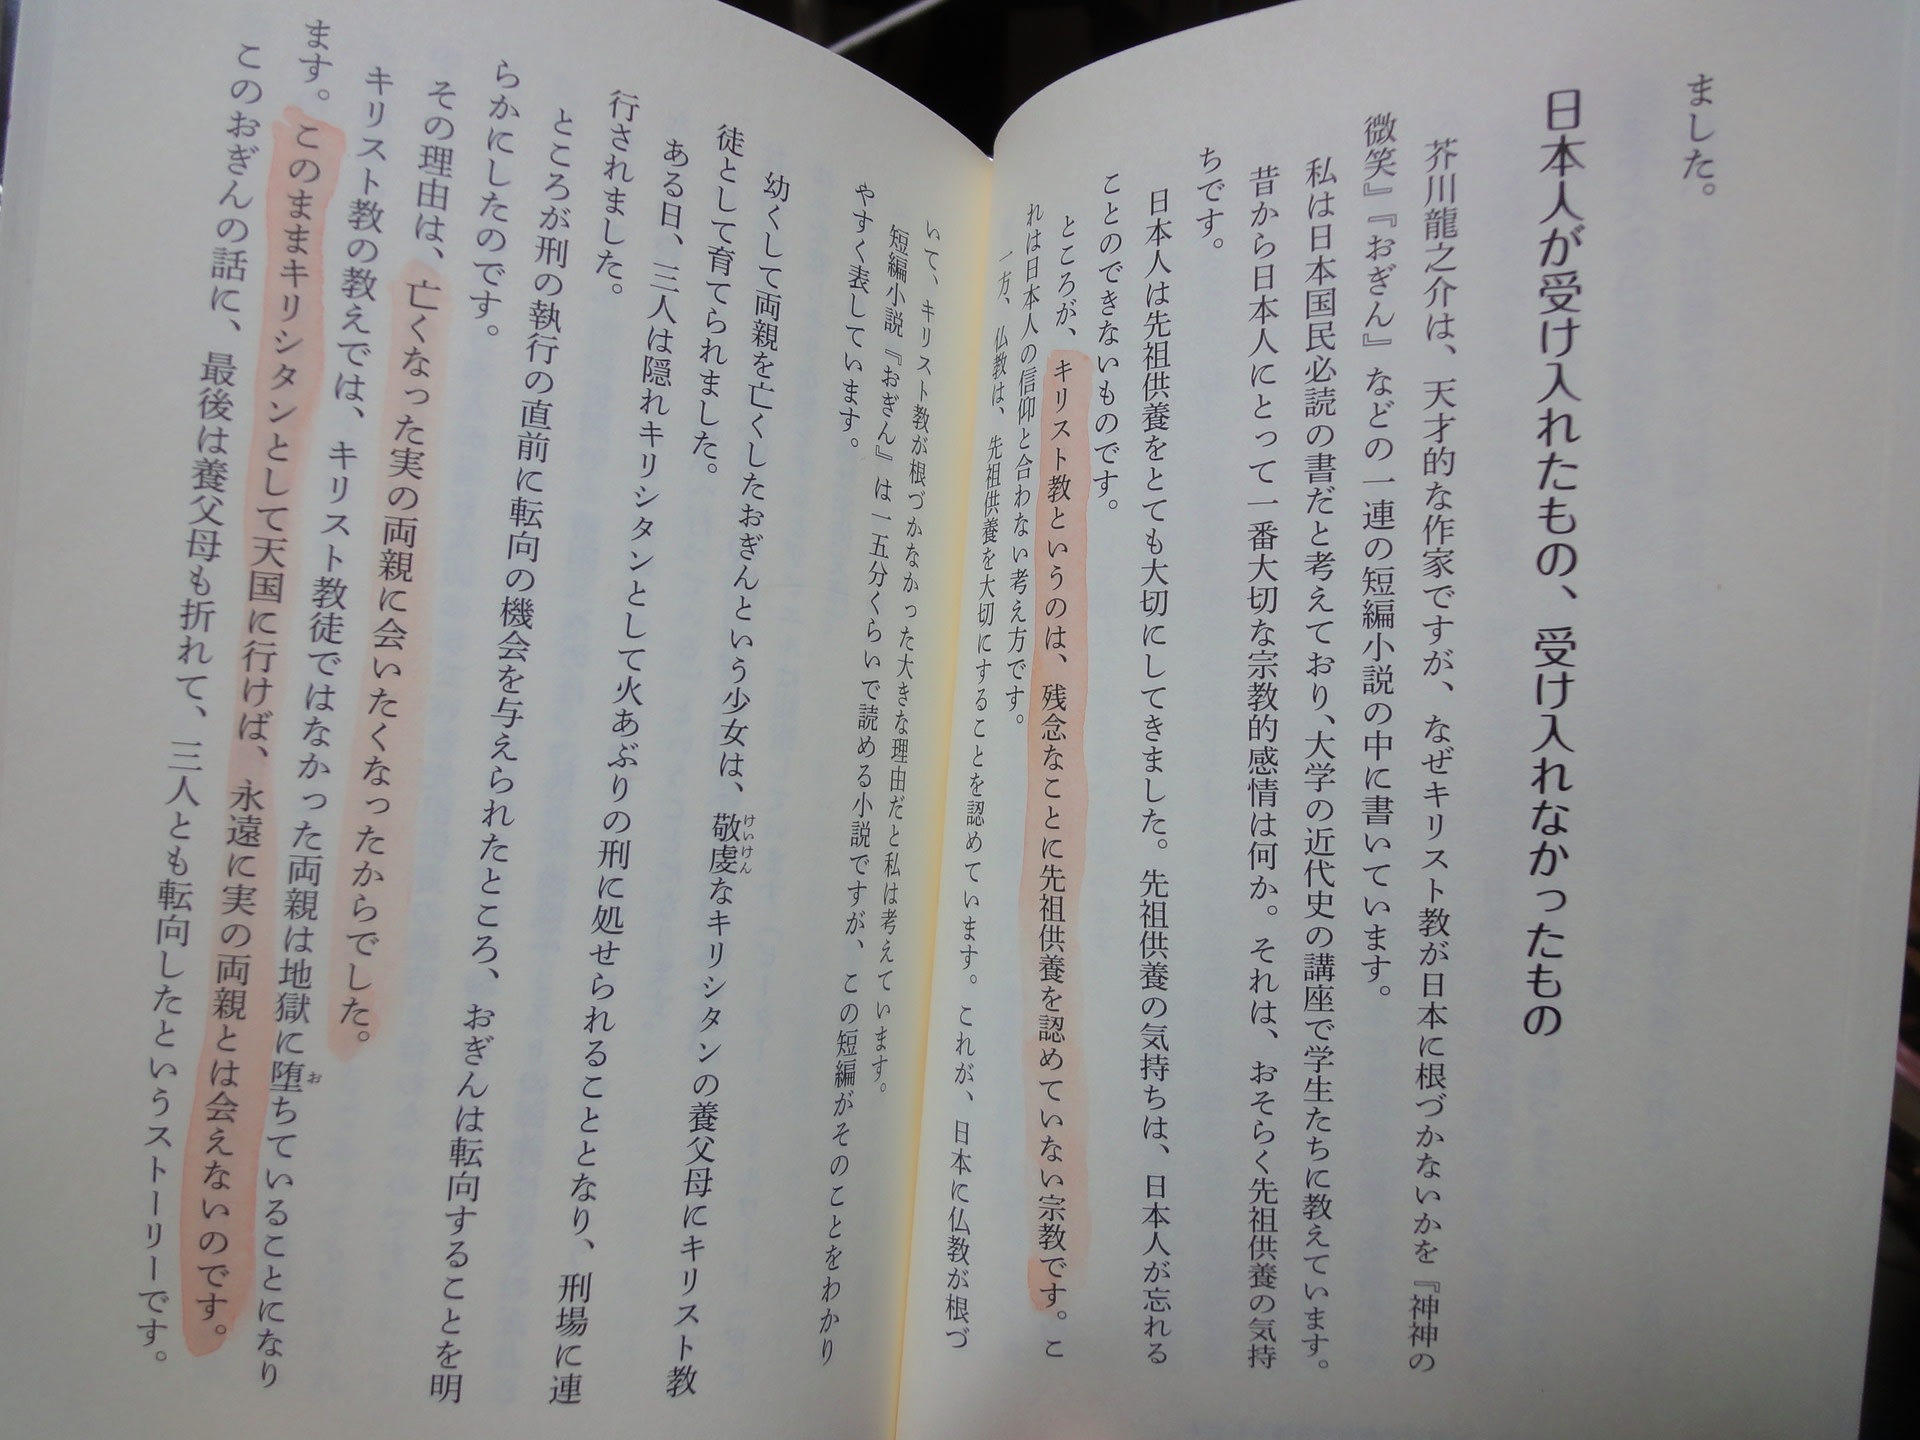 ました。
日本人が受け入れたもの、受け入れなかったもの
芥川龍之介は、天才的な作家ですが、なぜキリスト教が日本に根づかないかを『神神の
微笑』『おぎん』などの一連の短編小説の中に書いています。
私は日本国民必読の書だと考えており、大学の近代史の講座で学生たちに教えています。
昔から日本人にとって一番大切な宗教的感情は何か。それは、おそらく先祖供養の気持
ちです。
日本人は先祖供養をとても大切にしてきました。先祖供養の気持ちは、日本人が忘れる
ことのできないものです。
ところが、キリスト教というのは、残念なことに先祖供養を認めていない宗教です。こ
れは日本人の信仰と合わない考え方です。
一方、仏教は、先祖供養を大切にすることを認めています。これが、日本に仏教が根づ
いて、キリスト教が根づかなかった大きな理由だと私は考えています。
短編小説『おぎん』は一五分くらいで読める小説ですが、この短編がそのことをわかり
やすく表しています。
幼くして両親を亡くしたおぎんという少女は、敬虔なキリシタンの養父母にキリスト教
徒として育てられました。
ある日、三人は隠れキリシタンとして火あぶりの刑に処せられることとなり、刑場に連
行されました。
ところが刑の執行の直前に転向の機会を与えられたところ、おぎんは転向することを明
らかにしたのです。
その理由は、亡くなった実の両親に会いたくなったからでした。
キリスト教の教えでは、キリスト教徒ではなかった両親は地獄に堕ちていることになり
ます。このままキリシタンとして天国に行けば、永遠に実の両親とは会えないのです。
このおぎんの話に、最後は養父母も折れて、三人とも転向したというストーリーです。